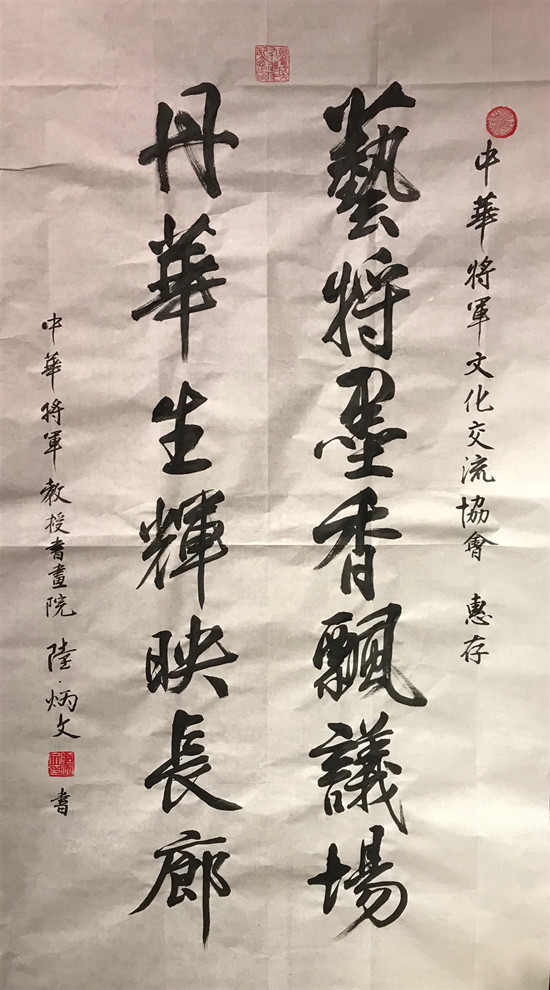 中華將軍文化交流協會 惠存
藝將墨香飄議場
丹華生輝映長廊
中華將軍教授書畫院 陸炳文 書